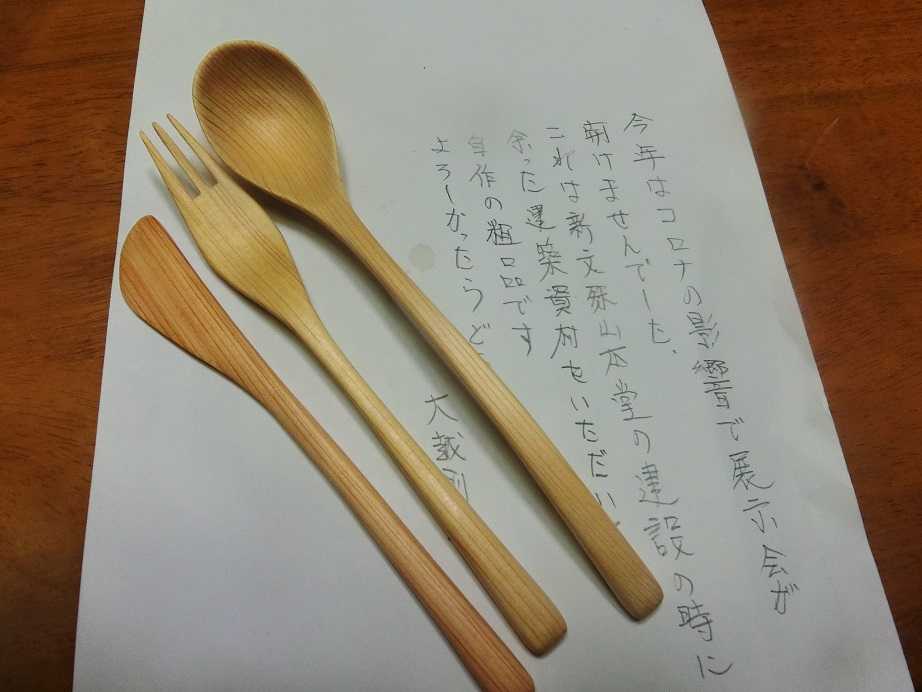 今年はコロナの影響で展示会が
開けませんでした、
これは新文殊山本堂の建設の時に
余った建築資材をいただい
自作の粗品です
よろしかったらど
大越